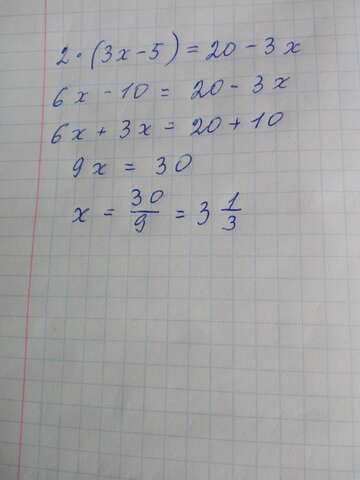 2 · (3x - 5) = 20 - 3x
6x - 10 = 20 - 3x
6x + 3x = 20 + 10
9x = 30
x = 30/9 = 3 1/3